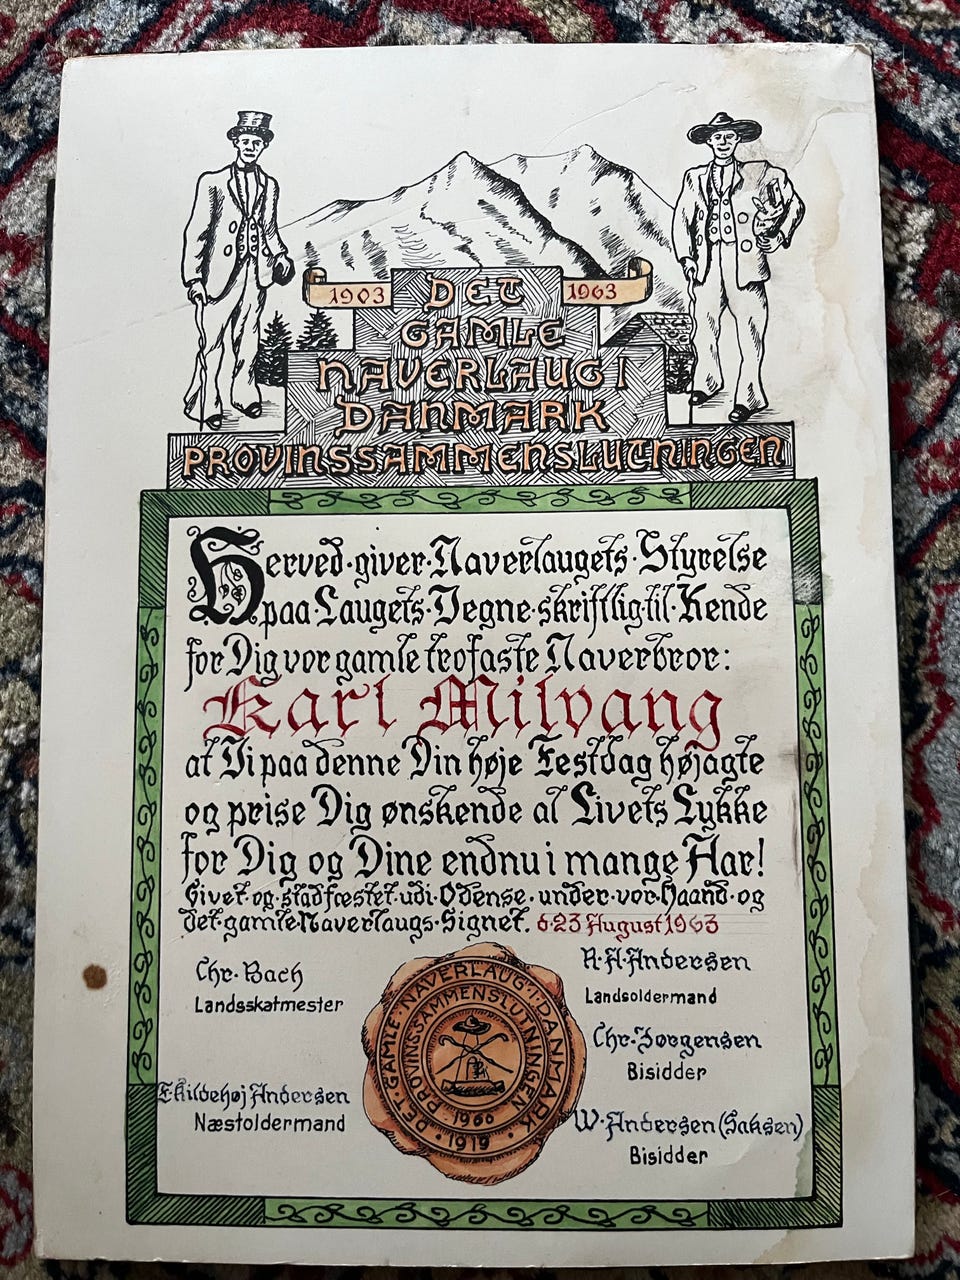 1903
1963
DET
GAMLE
NAVERLAUG I
DANMARK
PROVINSSAMMENSLUTNINGEN
Herved·giver·Naverlaugets·Styrelse
paa·Laugets·Vegne·skriftlig·til·Kende
for Dig vor gamle trofaste Naverbror:
Karl Milvang
at Vi paa denne Din høje Festdag højagte
og prise Dig ønskende al Livets Lykke
for Dig og Dine endnu i mange Aar!
Givet·og·stadfæstet·udi·Odense·under·vor·Haand·og
det·gamle·Naverlaugs·Signet. d·23 August 1963
Chr. Bach
Landsskatmester
R·A·Andersen
Landsoldermand
Chr·Jørgensen
Bisidder
E·Kildehøj Andersen
Næstoldermand
W·Andersen (Saksen)
Bisidder
DET·GAMLE·NAVERLAUG·I·DANMARK
PROVINSSAMMENSLUTNINGEN
1960
·1919·